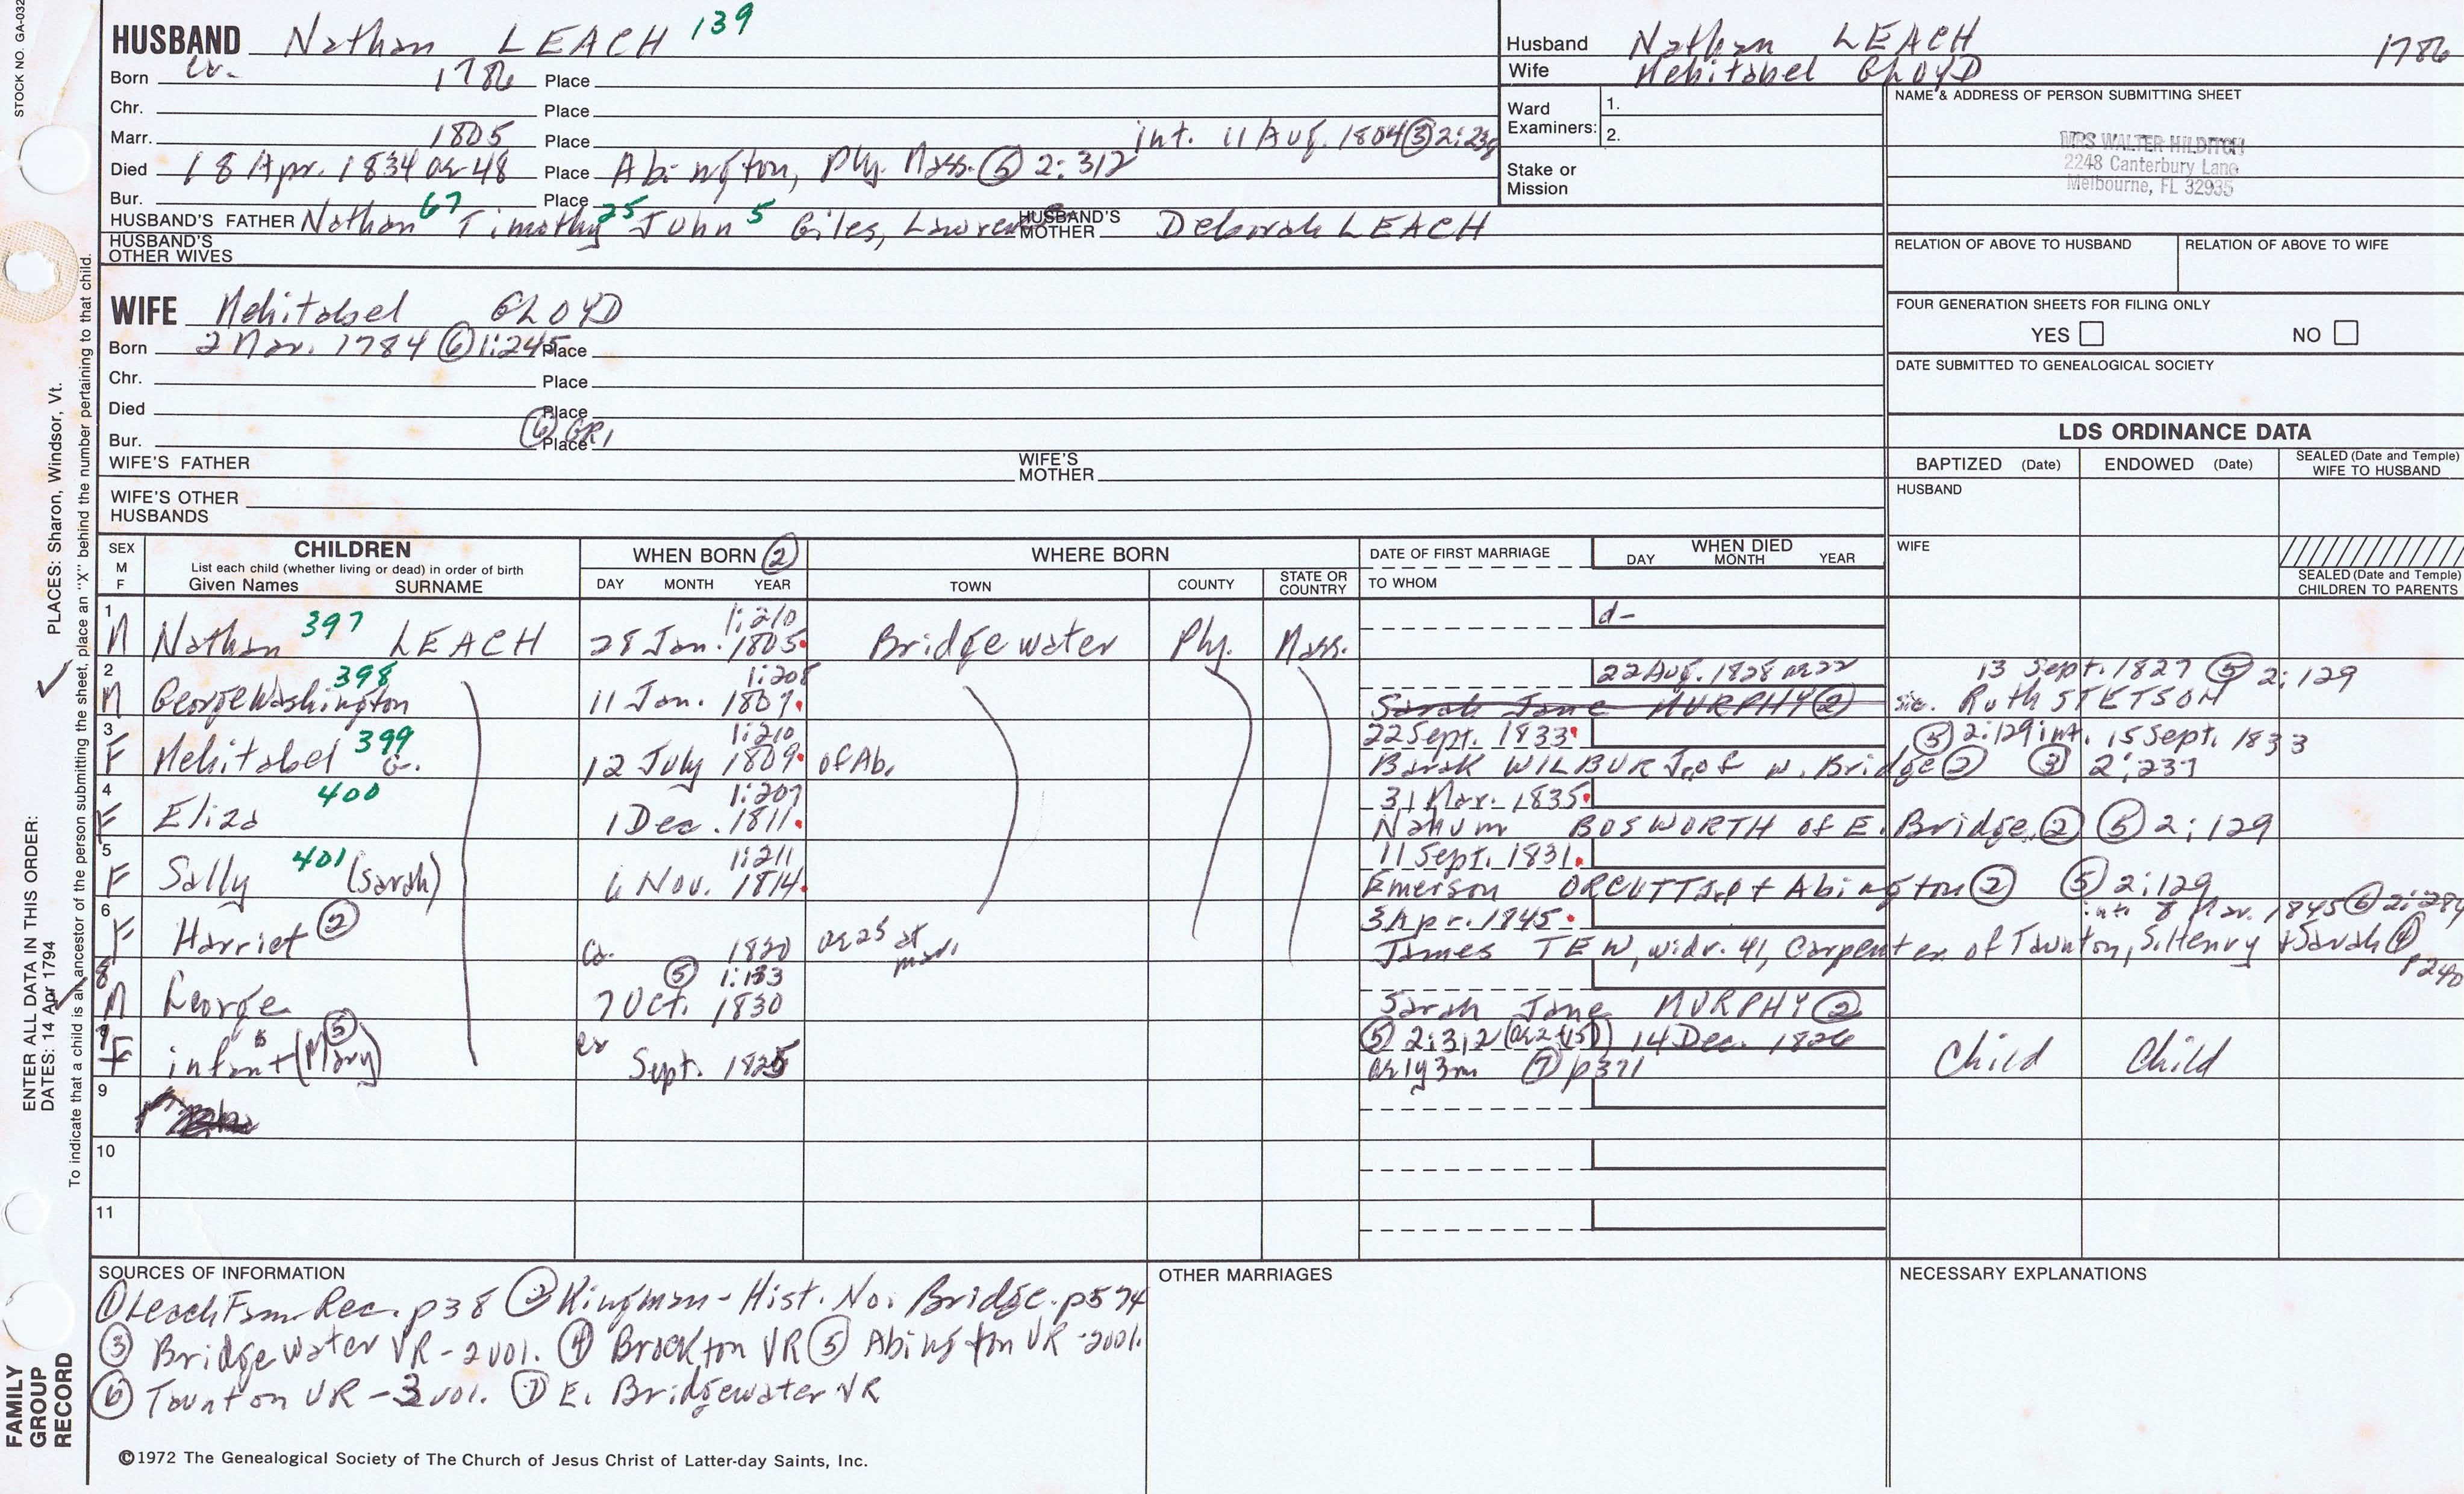 STOCK NO. GA-032
HUSBAND Nathan LEACH 139
Born ca. 1786 Place
Chr. Place
Marr. 1805 Place int. 11 Aug. 1804 ③ 2:238
Died 18 Apr. 1834 ae 48 Place Abington, Ply. Mass. ⑤ 2:312
Bur. Place
HUSBAND'S FATHER Nathan 67 Timothy 25 John 5 Giles, Lawrence HUSBAND'S MOTHER Deborah LEACH
HUSBAND'S OTHER WIVES
Husband Nathan LEACH 1786
Wife Mehitabel GLOYD
Ward Examiners: 1.
2.
Stake or Mission
NAME & ADDRESS OF PERSON SUBMITTING SHEET
MRS WALTER HILDITCH
2248 Canterbury Lane
Melbourne, FL 32935
RELATION OF ABOVE TO HUSBAND RELATION OF ABOVE TO WIFE
FOUR GENERATION SHEETS FOR FILING ONLY
YES NO
DATE SUBMITTED TO GENEALOGICAL SOCIETY
WIFE Mehitabel GLOYD
Born 2 Mar. 1784 ⑥ 1:245 Place
Chr. Place
Died Place
Bur. ⑥ GR1 Place
WIFE'S FATHER WIFE'S MOTHER
WIFE'S OTHER HUSBANDS
LDS ORDINANCE DATA
BAPTIZED (Date) ENDOWED (Date) SEALED (Date and Temple) WIFE TO HUSBAND
HUSBAND
WIFE
SEALED (Date and Temple) CHILDREN TO PARENTS
SEX M F CHILDREN List each child (whether living or dead) in order of birth Given Names SURNAME
WHEN BORN ② DAY MONTH YEAR
WHERE BORN TOWN COUNTY STATE OR COUNTRY
DATE OF FIRST MARRIAGE TO WHOM
WHEN DIED DAY MONTH YEAR
1 M Nathan 397 LEACH 28 Jan. 1805 1:210 Bridgewater Ply. Mass. d-
2 M George Washington 398 11 Jan. 1807 1:208 22 Aug. 1828 ae 22 13 Sept. 1827 ⑤ 2:129
Sarah Jane MURPHY ② sic. Ruth STETSON
3 F Mehitabel G. 399 12 July 1809 1:210 of Ab. 22 Sept. 1833 ⑤ 2:129 int. 15 Sept. 1833
Barak WILBUR Jr. of W. Bridge ② ③ 2:237
4 F Eliza 400 1 Dec. 1811 1:207 31 Mar. 1835
Nahum BOSWORTH of E. Bridge. ② ⑤ 2:129
5 F Sally 401 (Sarah) 6 Nov. 1814 1:211 11 Sept. 1831
Emerson ORCUTT Abington ② ⑤ 2:129
6 F Harriet ② Ca. 1820 ae 25 at marr. 3 Apr. 1845 int. 8 Mar. 1845 ⑥ 2:289
James TEW, widr. 41, Carpenter of Taunton, S. Henry + Sarah ④ p240
8 M George 7 Oct. 1830 ⑤ 1:133
Sarah Jane MURPHY ②
7 F infant (Mary) ⑤ Sept. 1825 ⑤ 2:312 14 Dec. 1826 Child Child
ae 1y 3m ⑦ p371
9
10
11
SOURCES OF INFORMATION
① Leach Fam. Rec. p38 ② Kingman - Hist. No. Bridge. p574
③ Bridgewater VR - 2 vol. ④ Brockton VR ⑤ Abington VR - 2 vol.
⑥ Taunton VR - 3 vol. ⑦ E. Bridgewater VR
OTHER MARRIAGES
NECESSARY EXPLANATIONS
©1972 The Genealogical Society of The Church of Jesus Christ of Latter-day Saints, Inc.
FAMILY GROUP RECORD
ENTER ALL DATA IN THIS ORDER:
DATES: 14 Apr 1794
PLACES: Sharon, Windsor, Vt.
To indicate that a child is an ancestor of the person submitting the sheet, place an "X" behind the number pertaining to that child.